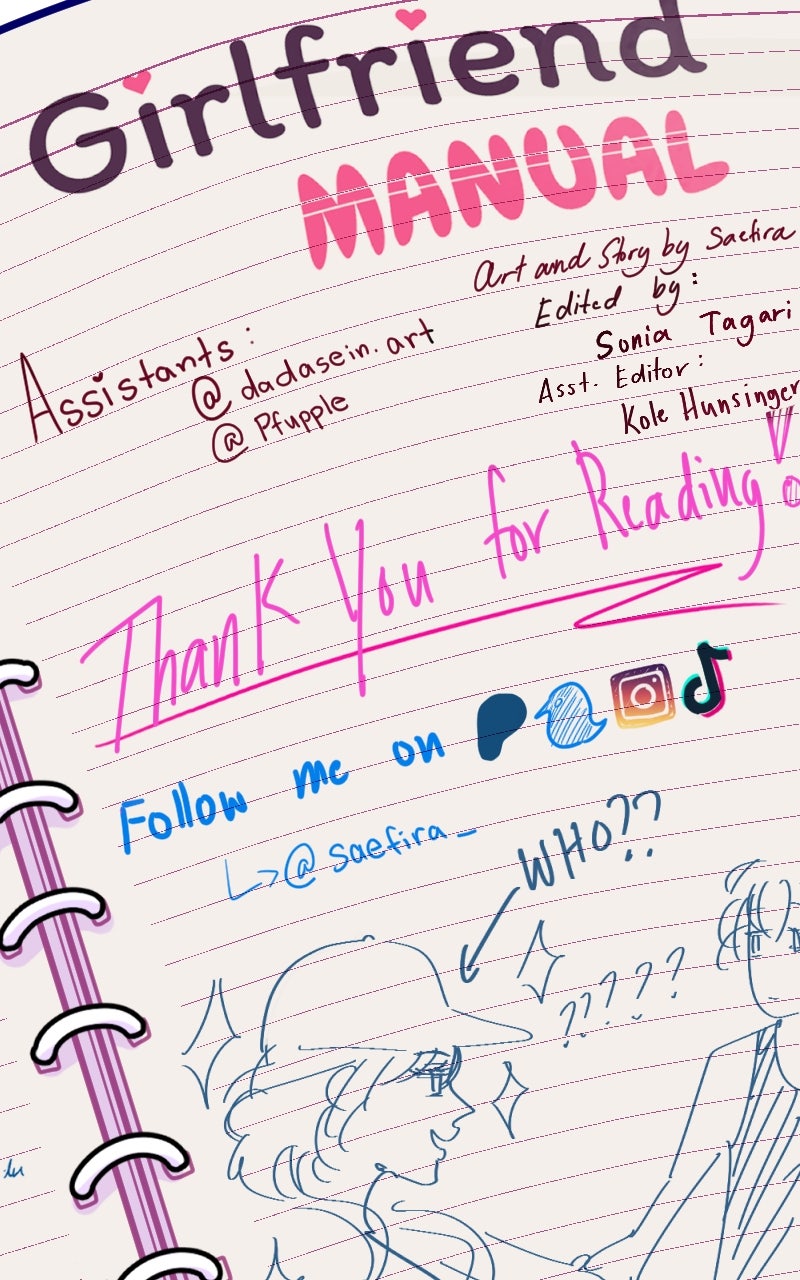 Girlfriend
MANUAL
Art and Story by Saefira
Edited by:
Sonia Tagari
Asst. Editor:
Kole Hunsinger
Assistants:
@dadasein.art
@Pfupple
Thank You for Reading!
Follow me on
@saefira_
WHO??
?????